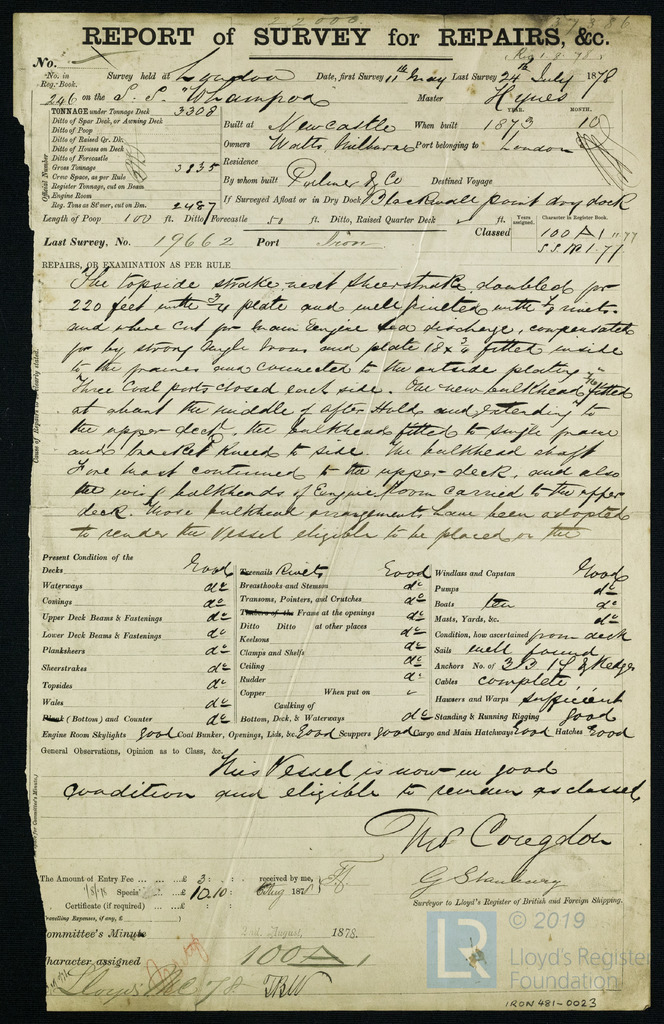 22000
37386
REPORT of SURVEY for REPAIRS, &c.
No.
No. in Reg. Book. Survey held at London Date, first Survey 11th May Last Survey 24th July 1878
246 on the S.S. "Whampoa" Master Hynes
TONNAGE under Tonnage Deck 3308
Ditto of Spar Deck, or Awning Deck
Ditto of Poop
Ditto of Raised Qr. Dk.
Ditto of House on Deck
Ditto of Forecastle
Gross Tonnage
Crew Space, as per Rule
Register Tonnage, cut on Beam
Engine Room
Reg. Tons as St'mer, cut on Bm. 2487
Official Number
YEAR. MONTH.
Built at Newcastle When built 1873 10
Owners Watts, Milburn Port belonging to London
Residence
By whom built Palmer & Co Destined Voyage
If Surveyed Afloat or in Dry Dock Blackwall point dry dock
Length of Poop 100 ft. Ditto Forecastle 50 ft. Ditto, Raised Quarter Deck ft. Years assigned. Character in Register Book.
Classed 100 A 1 11-77
S.S. No 1-77
Last Survey, No. 19662 Port Iron
REPAIRS, OR EXAMINATION AS PER RULE
The topside strake next Sheerstrake doubled for
220 feet with 3/4 plate and well rivetted with rivets
and where cut for main Engine Sea discharge, compensated
for by strong Angle Irons and plate 18 x 3/4 fitted inside
to the frames and connected to the outside plating.
Three Coal ports closed each side. One new bulkhead fitted
at about the middle of After Hold and extending to
the upper deck, the bulkhead fitted to single frame
and bracket kneed to side. The bulkhead abaft
Fore mast continued to the upper deck, and also
the wing bulkheads of Engine Room carried to the upper
deck. These bulkhead arrangements have been adopted
to render the Vessel eligible to be placed on the
Present Condition of the
Decks Good
Waterways do
Comings do
Upper Deck Beams & Fastenings do
Lower Deck Beams & Fastenings do
Planksheers do
Sheerstrakes do
Topsides do
Wales do
Plank (Bottom) and Counter do
Treenails Rivets Good
Breasthooks and Stemson do
Transoms, Pointers, and Crutches do
Timbers of the Frame at the openings do
Ditto Ditto at other places do
Keelsons do
Clamps and Shelfs do
Ceiling do
Rudder do
Copper When put on
Caulking of
Bottom, Deck, & Waterways do
Windlass and Capstan Good
Pumps do
Boats ten do
Masts, Yards, &c. do
Condition, how ascertained from deck
Sails well found
Anchors No. of 3 B 1 S & Kedges
Cables complete
Hawsers and Warps sufficient
Standing & Running Rigging good
Engine Room Skylights good Coal Bunker, Openings, Lids, &c. Good Scuppers good Cargo and Main Hatchways Good Hatches Good
General Observations, Opinion as to Class, &c.
This Vessel is now in good
condition and eligible to remain as classed
Thos Congdon
The Amount of Entry Fee ... ... £ 3 : : received by me,
Special ... £ 10.10 : Aug 1878
Certificate (if required) ... £ : :
Travelling Expenses, if any, £
G Stanbury
Surveyor to Lloyd's Register of British and Foreign Shipping.
Committee's Minute 2nd August, 1878.
Character assigned 100 A 1
Lloyds M.C. 78
LR
© 2019
Lloyd's Register
Foundation
IRON 481-0023